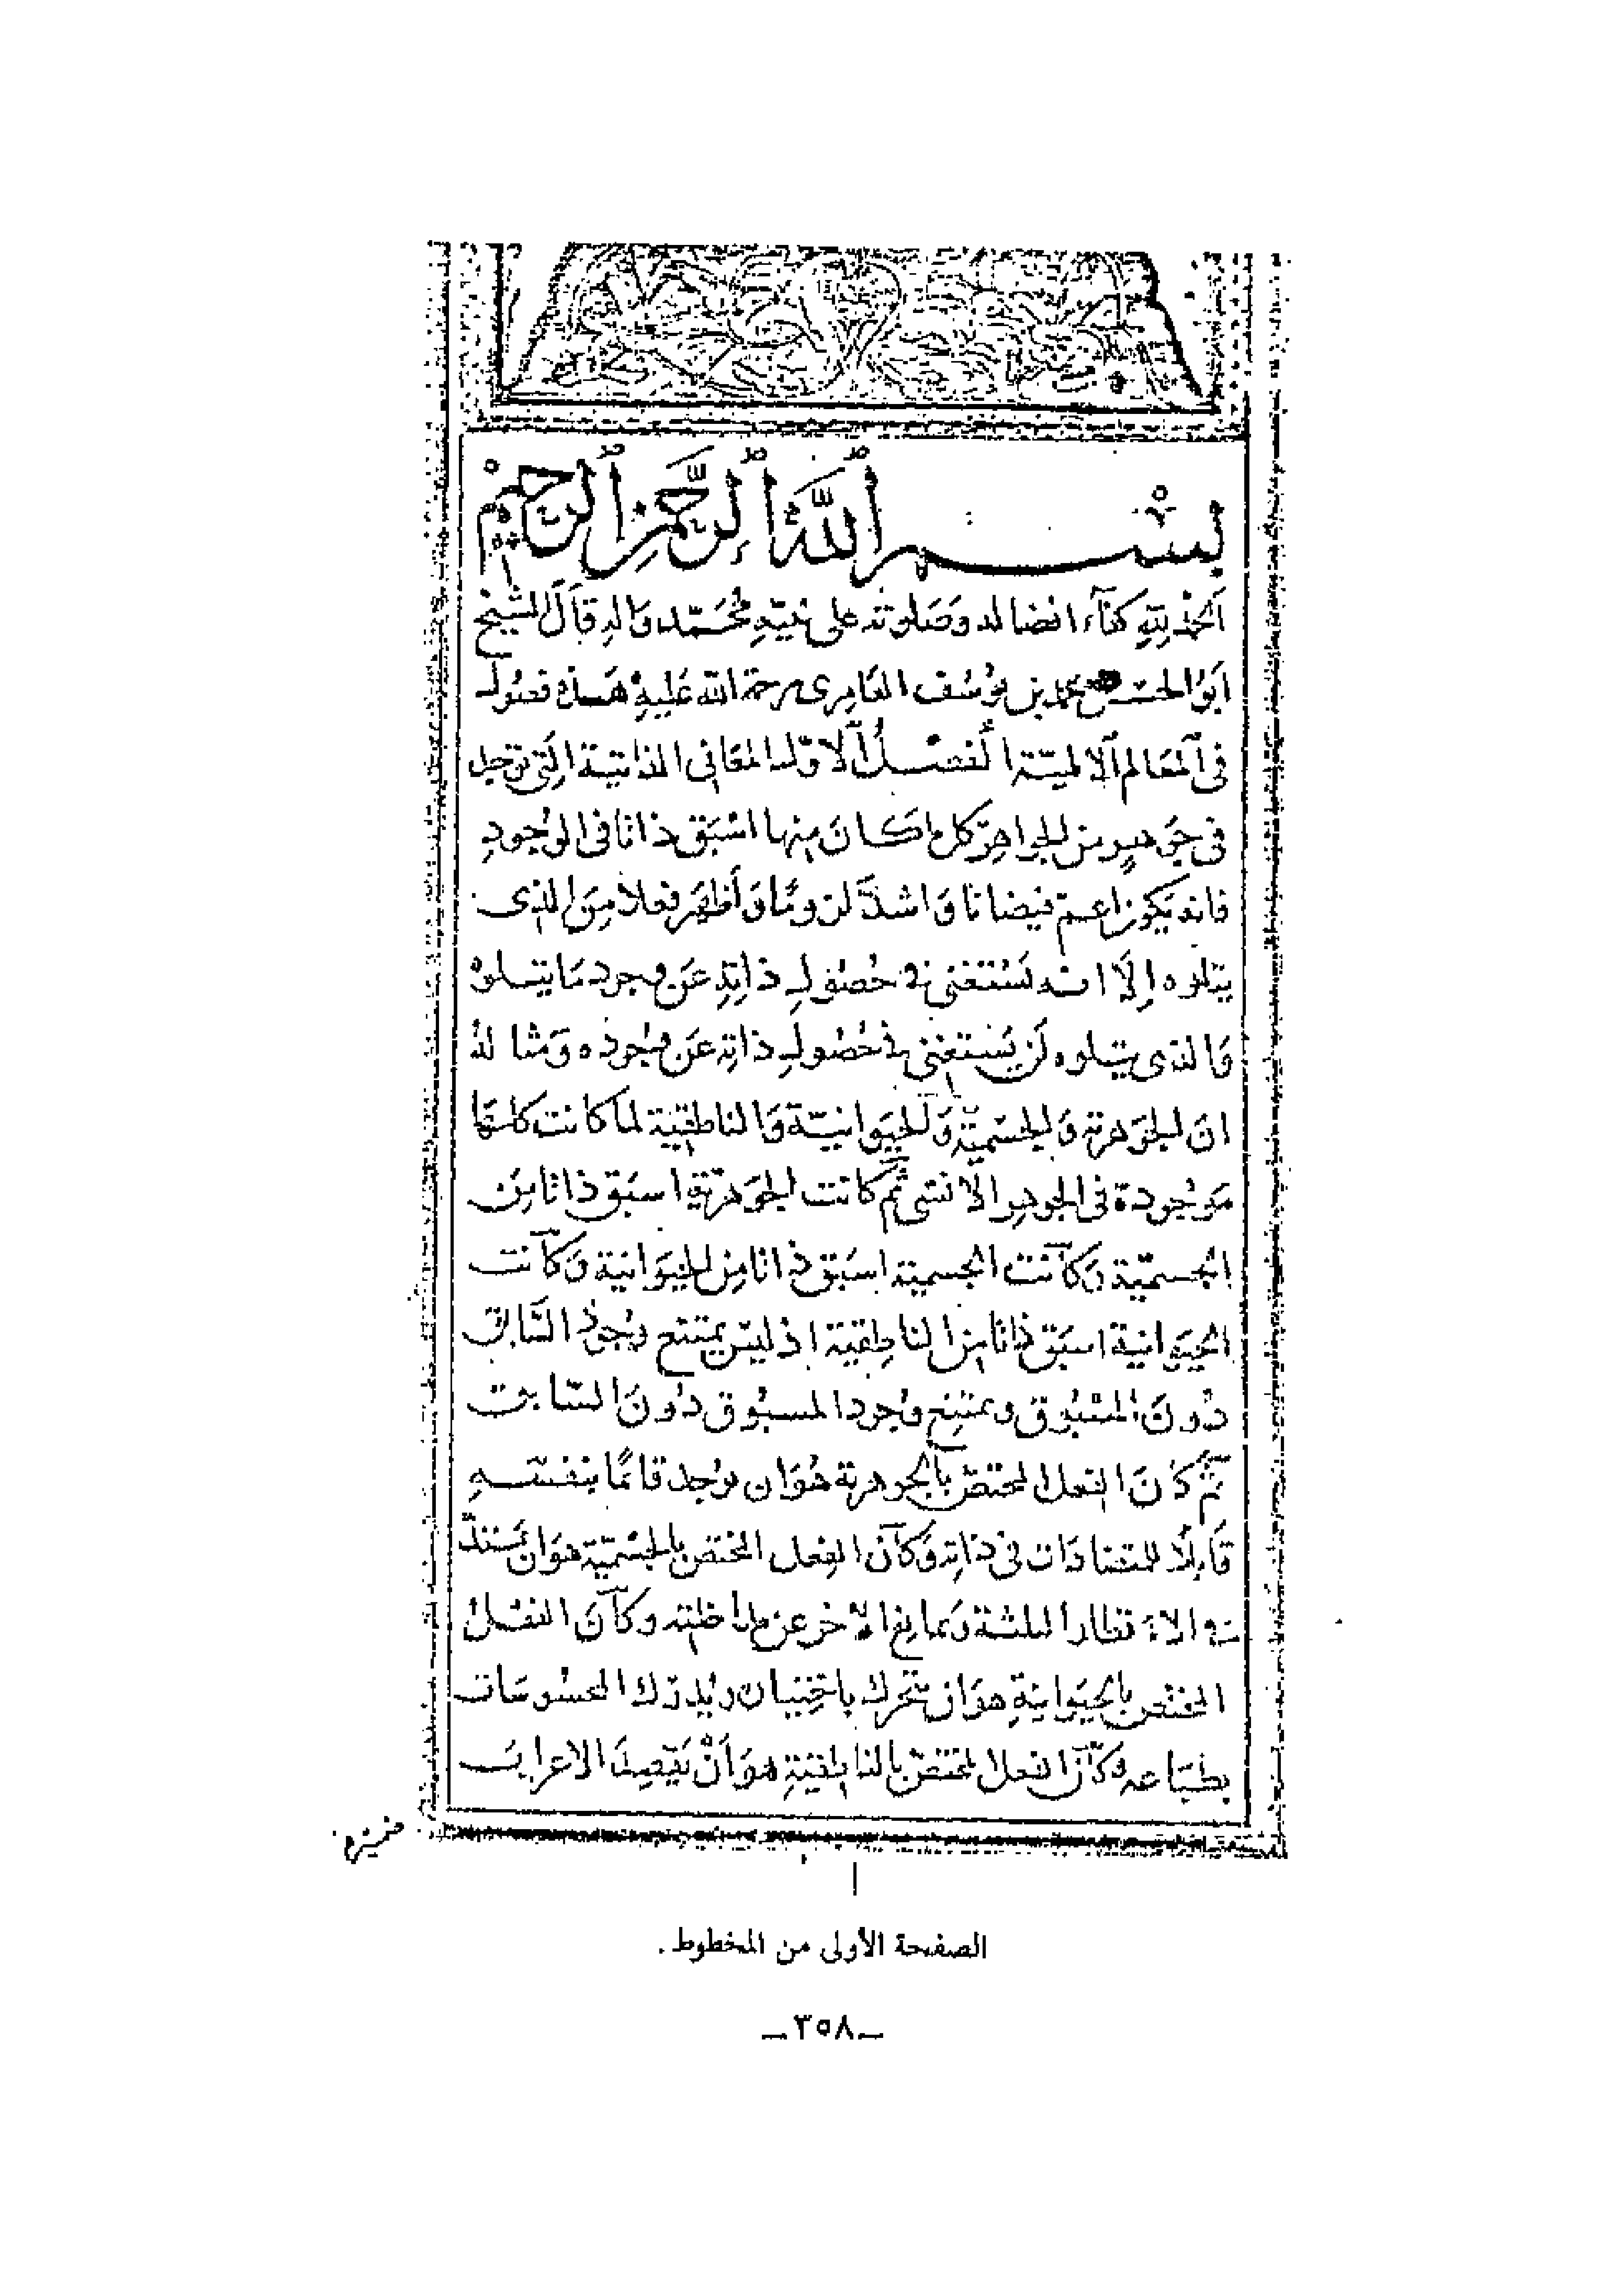 بسم الله الرحمن الرحيم
الحمد لله كفآء افضاله وصلوته على نبيّه محمّد وآله قال الشيخ
ابو الحسن محمد بن يوسف العامرى رحمة الله عليه هذه فصول
فى المعالم الالهيّة الفصل الاوّل المعانى الذاتيّة التى توجد
فى جوهر من الجواهر كل ما كان منها اسبق ذاتا فى الوجود
فانه يكون اعم فيضانا واشدّ لزوما واظهر فعلا من الذى
يتلوه الا انه يستغنى فى حصول ذاته عن وجود ما يتلوه
والذى يتلوه لن يستغنى فى حصول ذاته عن وجوده ومثاله
ان الجوهرية والجسمية والحيوانيّة والناطقية لما كانت كلها
موجودة فى الجوهر الانسى ثم كانت الجوهرية اسبق ذاتا من
الجسميّة وكانت الجسمية اسبق ذاتا من الحيوانية وكانت
الحيوانية اسبق ذاتا من الناطقية اذ ليس يمتنع وجود السابق
دون المسبوق ويمتنع وجود المسبوق دون السابق
ثم كان الفعل المختص بالجوهرية هو ان يوجد قائما بنفسه
قابلا للمتضادات فى ذاته وكان الفعل المختص بالجسميّة هو ان يمتدّ
فى الاقطار الثلثة ويمانع الاخر عن مداخلته وكان الفعل
المختص بالحيوانية هو ان يتحرك باختيار ويدرك المحسوسات
بطباعه وكان الفعل المختص بالناطقية هو ان يقصد الاعراب
الصفحة الأولى من المخطوط .
ـ ٣٥٨ ـ